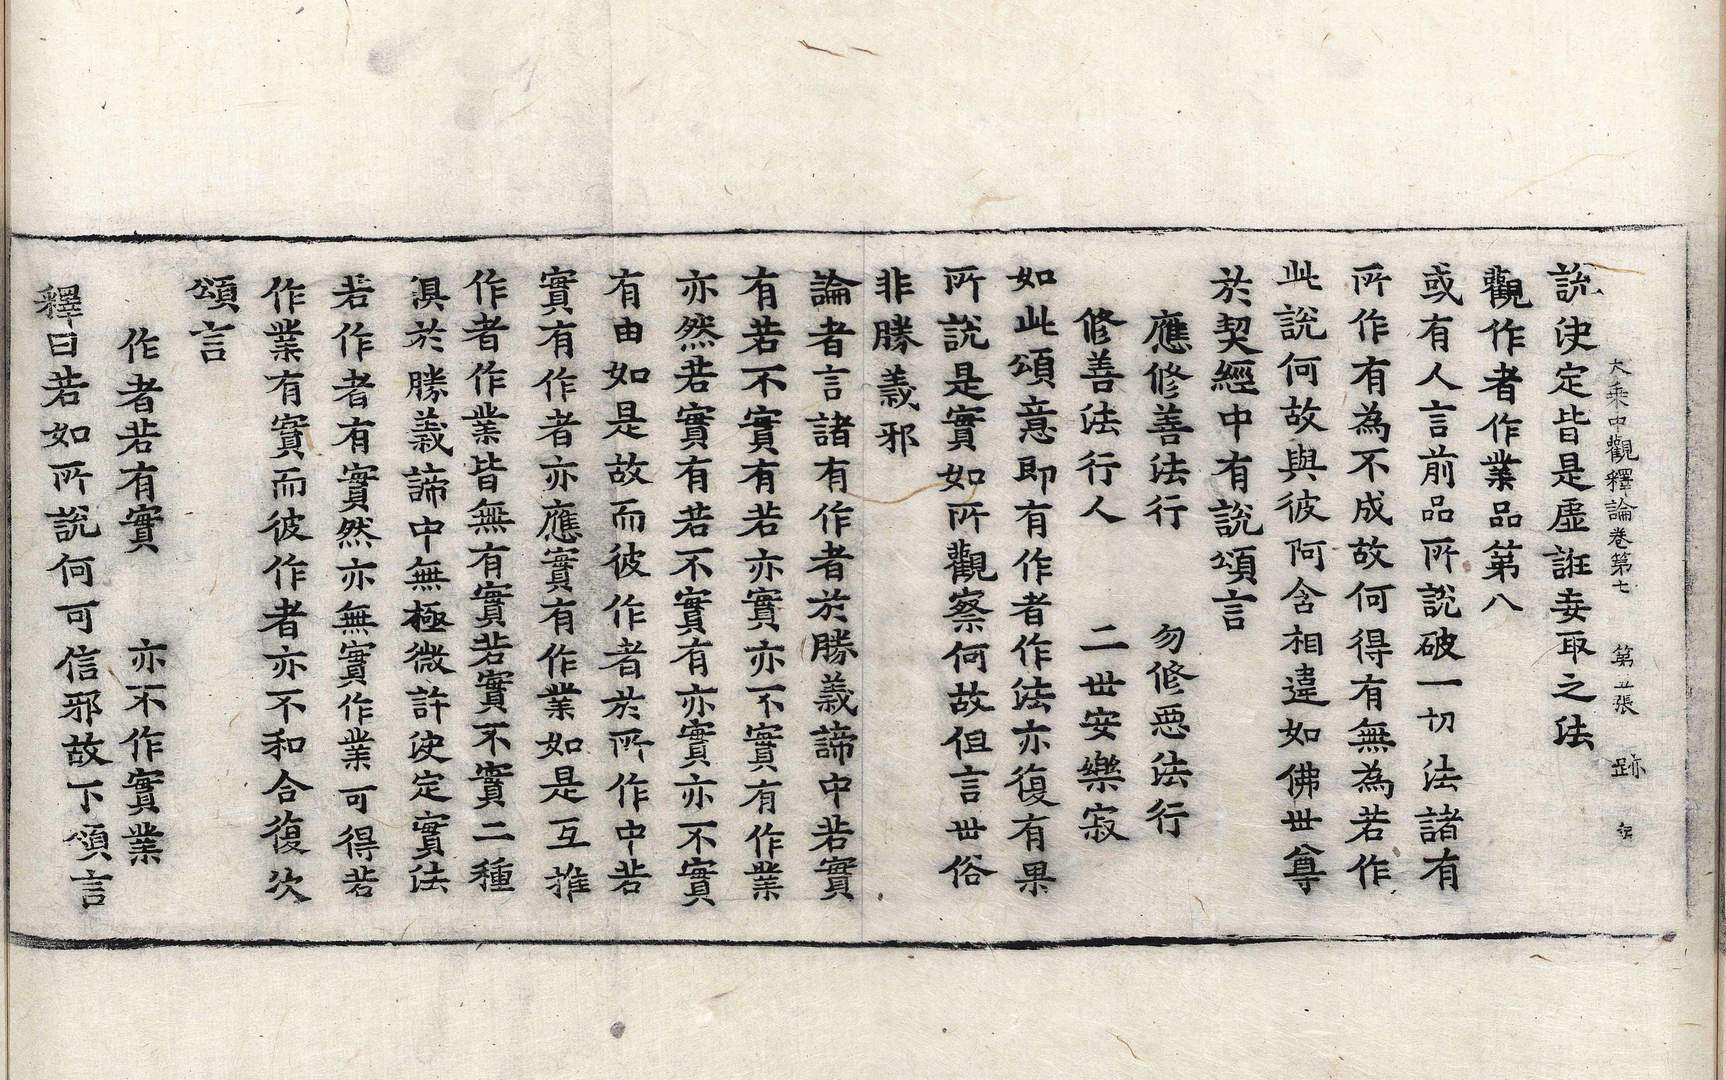 大乘中觀釋論卷第七 第五張 跡
說決定皆是虛誑妄取之法
觀作者作業品第八
或有人言前品所說破一切法諸有
所作有為不成故何得有無為若作
此說何故與彼阿含相違如佛世尊
於契經中有說頌言
應修善法行 勿修惡法行
修善法行人 二世安樂寂
如此頌意即有作者作法亦復有果
所說是實如所觀察何故但言世俗
非勝義邪
論者言諸有作者於勝義諦中若實
有若不實有若亦實亦不實有作業
亦然若實有若不實有亦實亦不實
有由如是故而彼作者於所作中若
實有作者亦應實有作業如是互推
作者作業皆無有實若實不實二種
俱於勝義諦中無極微許決定實法
若作者有實然亦無實作業可得若
作業有實而彼作者亦不和合復次
頌言
作者若有實 亦不作實業
釋曰若如所說何可信邪故下頌言